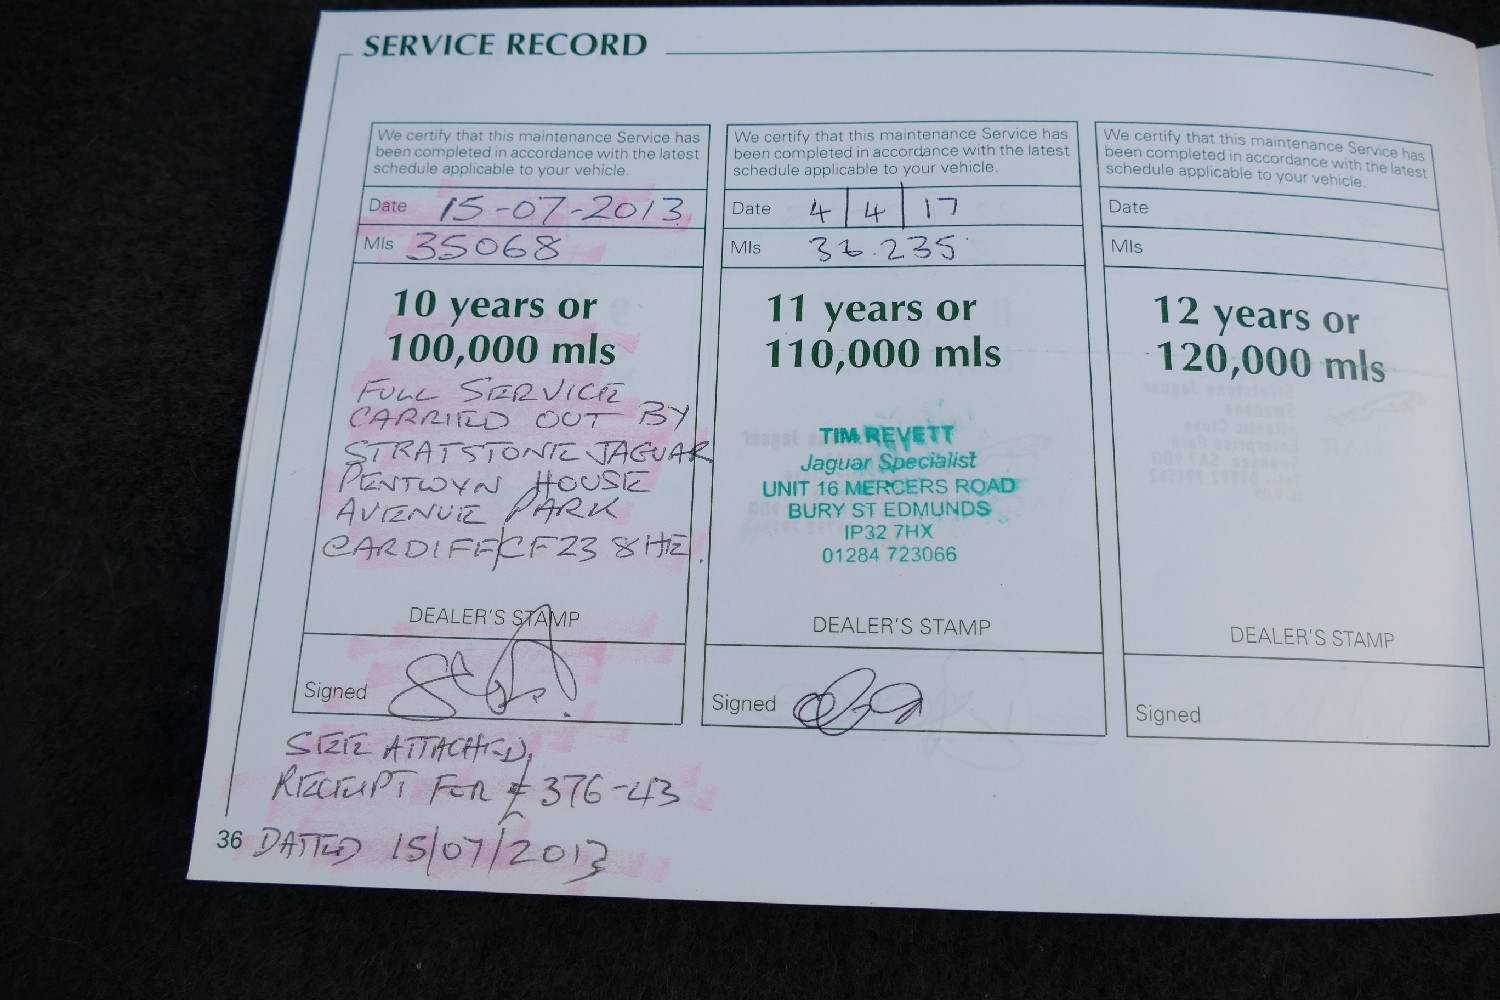 SERVICE RECORD
We certify that this maintenance Service has
been completed in accordance with the latest
schedule applicable to your vehicle.
Date 15-07-2013
Mls 35068
10 years or
100,000 mls
FULL SERVICE
CARRIED OUT BY
STRATSTONE JAGUAR
PENTWYN HOUSE
AVENUE PARK
CARDIFF CF23 8HE.
DEALER'S STAMP
Signed
SEE ATTACHED,
RECEIPT FOR £376-43
DATED 15/07/2013
36
We certify that this maintenance Service has
been completed in accordance with the latest
schedule applicable to your vehicle.
Date 4/4/17
Mls 36.235
11 years or
110,000 mls
TIM REVETT
Jaguar Specialist
UNIT 16 MERCERS ROAD
BURY ST EDMUNDS
IP32 7HX
01284 723066
DEALER'S STAMP
Signed
We certify that this maintenance Service has
been completed in accordance with the latest
schedule applicable to your vehicle.
Date
Mls
12 years or
120,000 mls
DEALER'S STAMP
Signed